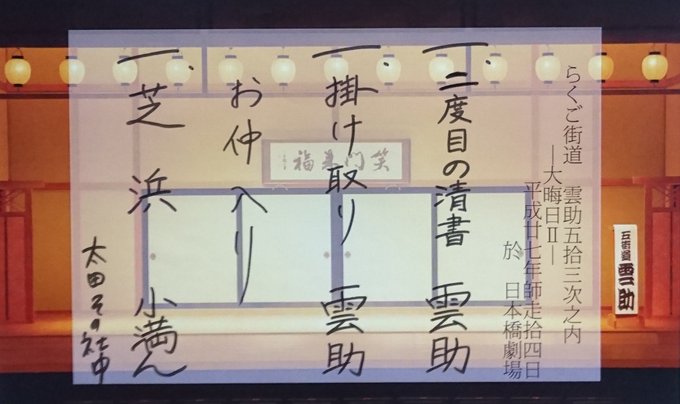 らくご街道 雲助五拾三次之内
―大晦日Ⅱ―
平成廿七年師走拾四日
於 日本橋劇場
一、二度目の清書 雲助
一、掛け取り 雲助
お仲入り
一、芝浜 小満ん
太田その社中
笑門来福
五街道 雲助